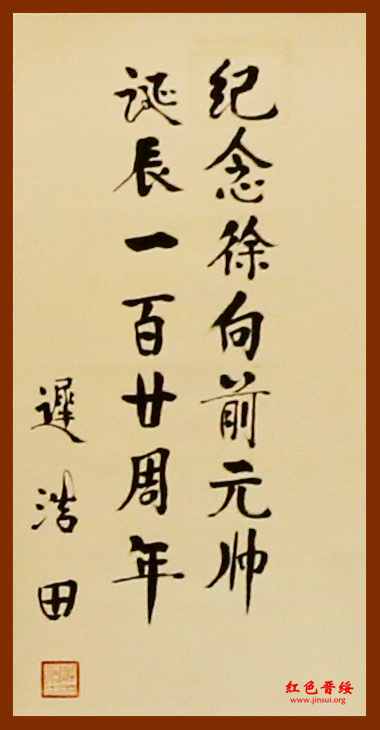 纪念徐向前元帅
诞辰一百廿周年
遲浩田
红色晋绥
www.jinsui.org